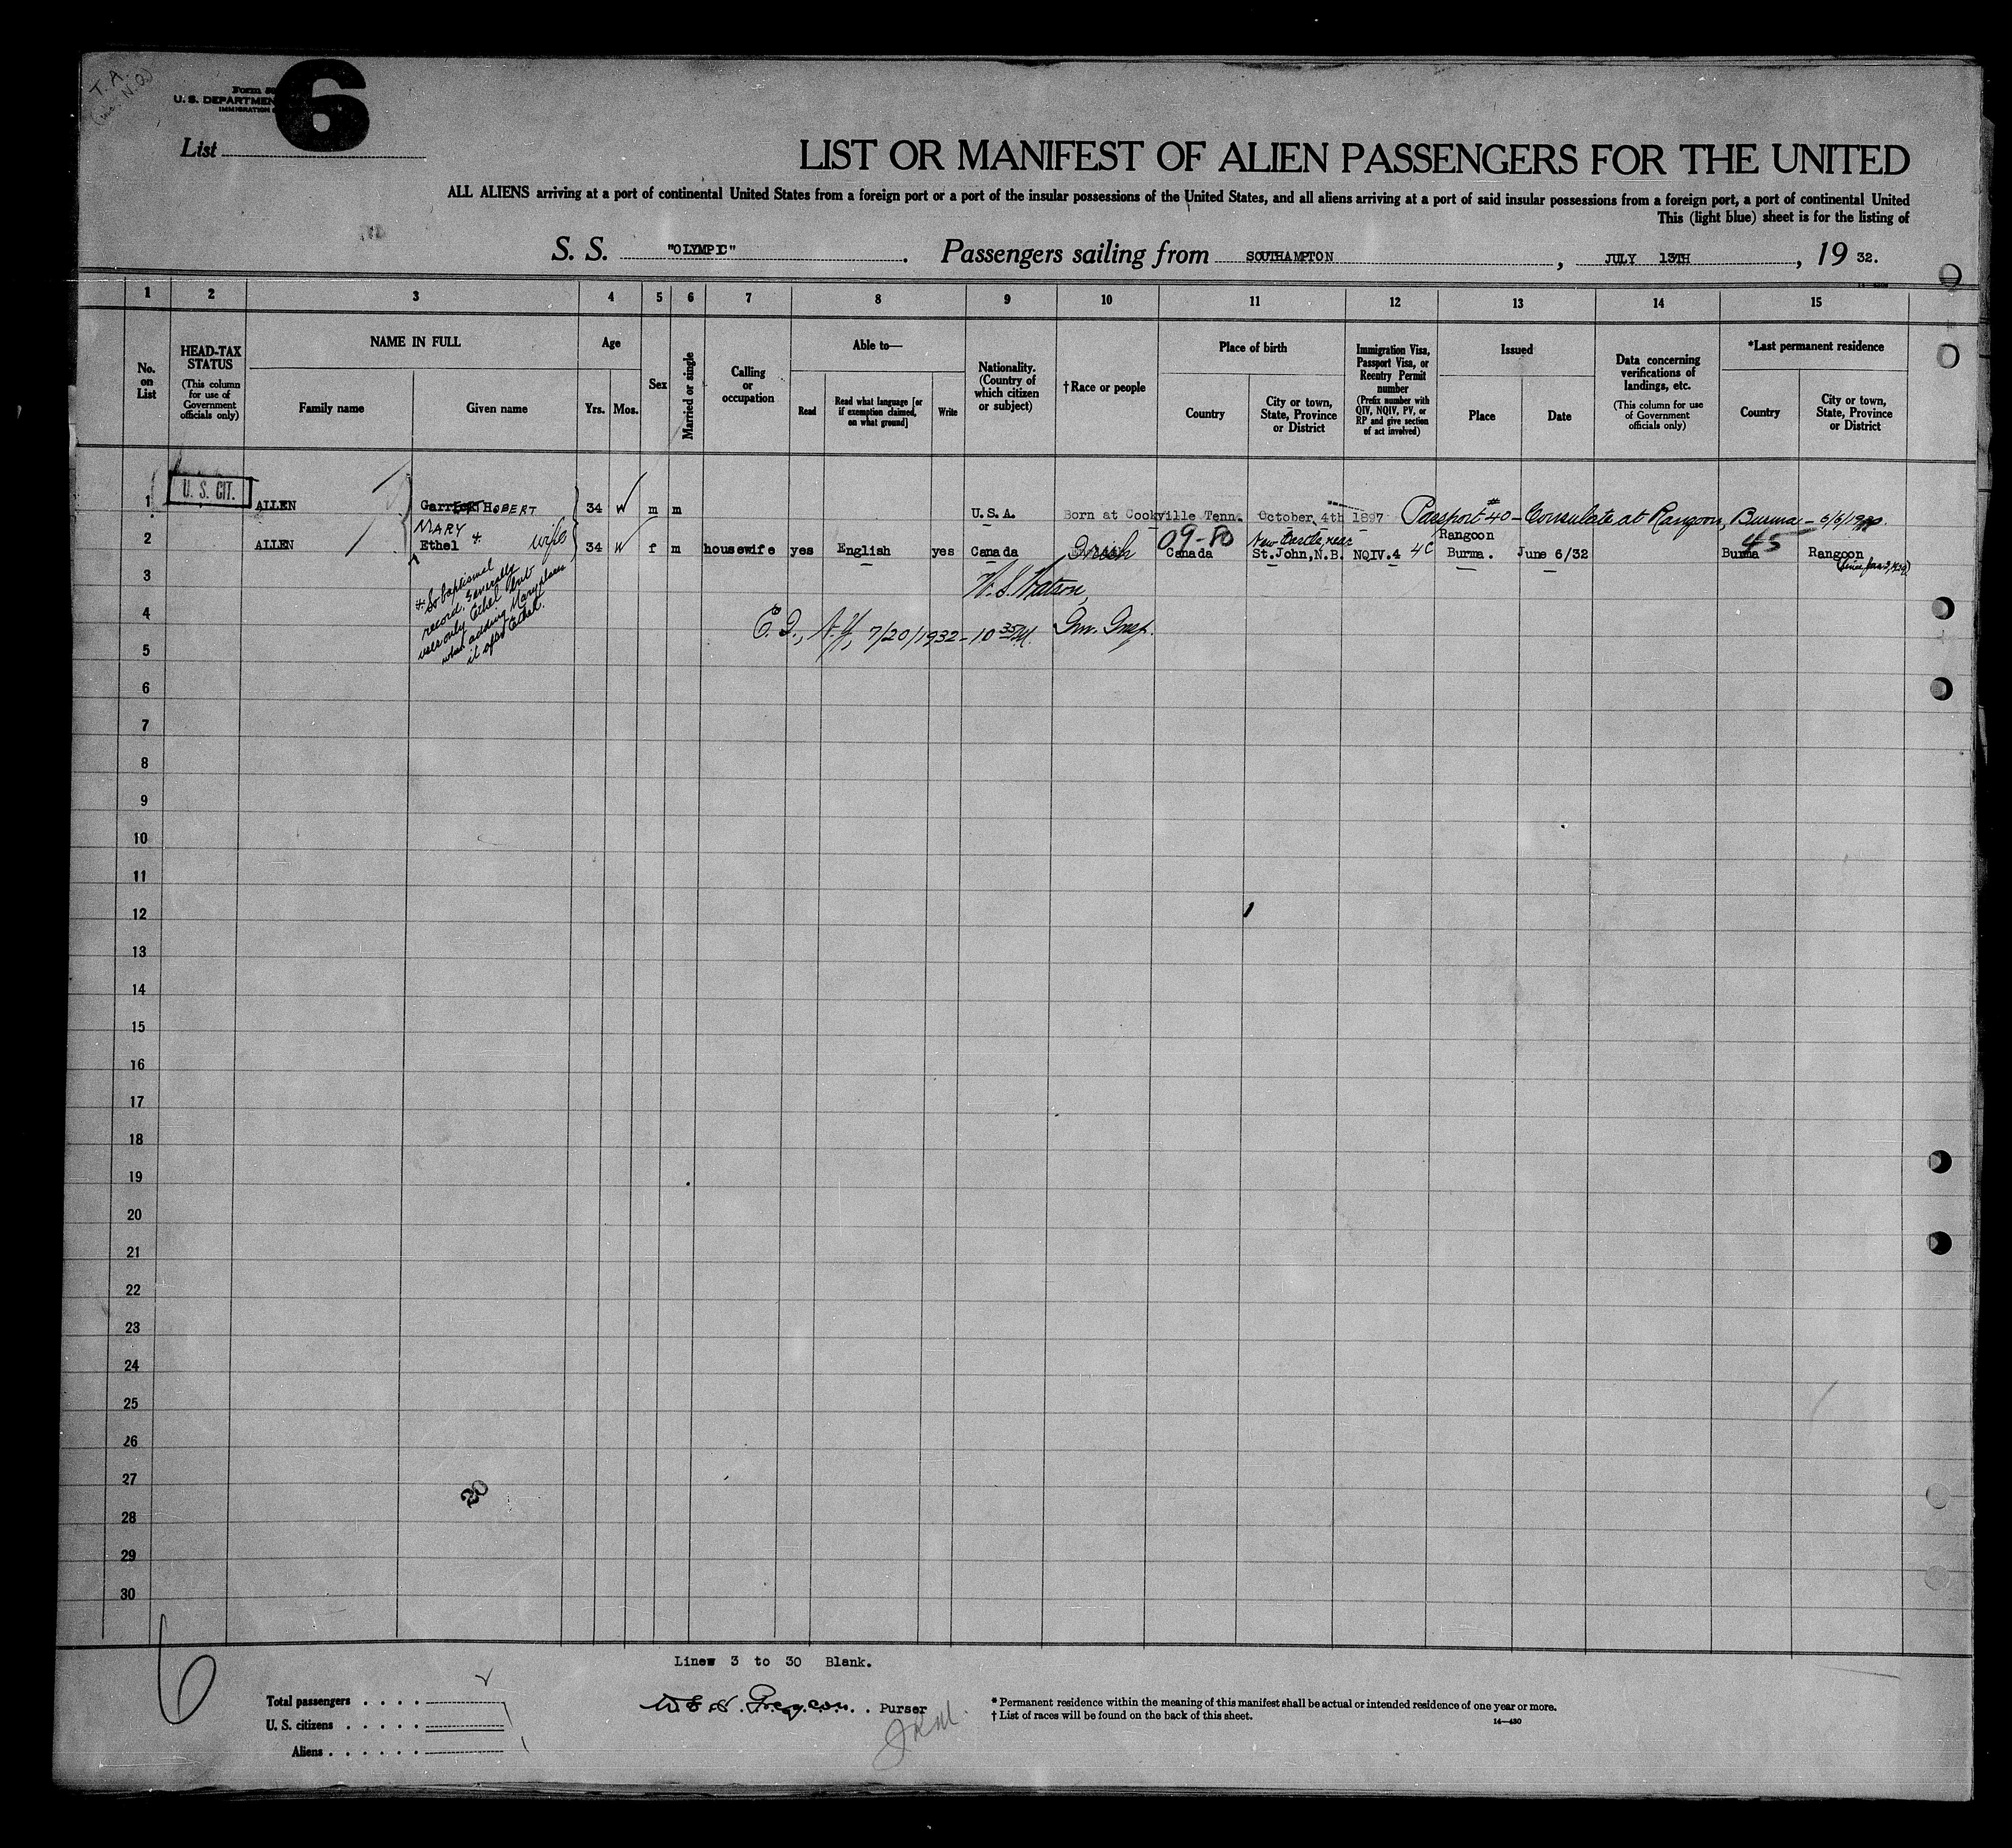 6
T. A.
Form
U. S. DEPARTMEN
IMMIGRATION
List
LIST OR MANIFEST OF ALIEN PASSENGERS FOR THE UNITED
ALL ALIENS arriving at a port of continental United States from a foreign port or a port of the insular possessions of the United States, and all aliens arriving at a port of said insular possessions from a foreign port, a port of continental United
This (light blue) sheet is for the listing of
S. S. "OLYMPIC" . Passengers sailing from SOUTHAMPTON , JULY 13TH , 19 32.
1 2 3 4 5 6 7 8 9 10 11 12 13 14 15
No. on List
HEAD-TAX STATUS
(This column for use of Government officials only)
NAME IN FULL
Family name
Given name
Age
Yrs. Mos.
Sex
Married or single
Calling or occupation
Able to—
Read
Read what language [or if exemption claimed, on what ground]
Write
Nationality. (Country of which citizen or subject)
†Race or people
Place of birth
Country
City or town, State, Province or District
Immigration Visa, Passport Visa, or Reentry Permit number
(Prefix number with QIV, NQIV, PV, or RP and give section of act involved)
Issued
Place
Date
Data concerning verifications of landings, etc.
(This column for use of Government officials only)
*Last permanent residence
Country
City or town, State, Province or District
1 U. S. CIT. ALLEN HOBERT 34 W m m U.S.A. Born at Cookville Tenn. October 4th 1897 Passport #40 - Consulate at Rangoon, Burma -
MARY + wife 09-80 New Castle, near Rangoon 45
2 ALLEN Ethel 34 W f m housewife yes English yes Canada Irish Canada St.John,N.B. NQIV.4 4C Burma. June 6/32 Burma Rangoon
+ So baptismal
record. Generally
uses only Ethel but
when adding Mary places
it after Ethel.
W. S. Watson,
E. I., N.Y., 7/20/1932 - 10 35 Imm. Insp.
3
4
5
6
7
8
9
10
11
12
13
14
15
16
17
18
19
20
21
22
23
24
25
26
27
28
29
30
30
6
Lines 3 to 30 Blank.
Total passengers . . . .
U. S. citizens . . . . .
Aliens . . . . . .
Purser
* Permanent residence within the meaning of this manifest shall be actual or intended residence of one year or more.
† List of races will be found on the back of this sheet.
14—430